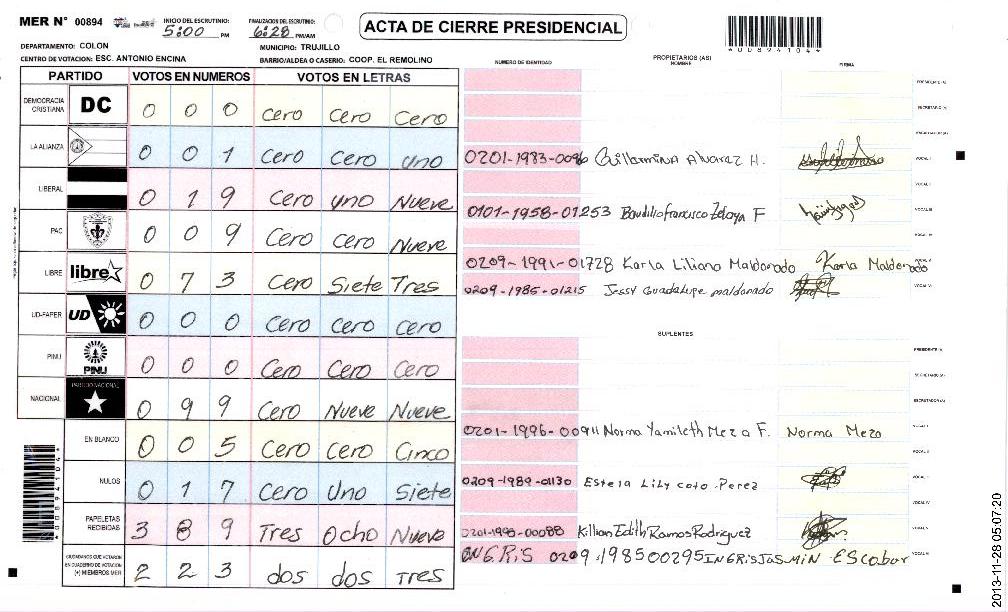 MER N° 00894
INICIO DEL ESCRUTINIO: 5:00 PM
FINALIZACION DEL ESCRUTINIO: 6:28 PM/AM
ACTA DE CIERRE PRESIDENCIAL
*00894104*
DEPARTAMENTO: COLON
MUNICIPIO: TRUJILLO
CENTRO DE VOTACION: ESC. ANTONIO ENCINA
BARRIO/ALDEA O CASERIO: COOP. EL REMOLINO
PARTIDO VOTOS EN NUMEROS VOTOS EN LETRAS
DEMOCRACIA CRISTIANA DC 0 0 0 Cero Cero Cero
LA ALIANZA 0 0 1 Cero Cero Uno
LIBERAL 0 1 9 Cero Uno Nueve
PAC 0 0 9 Cero Cero Nueve
LIBRE libre 0 7 3 Cero Siete Tres
UD-FAPER UD 0 0 0 Cero Cero Cero
PINU PINU 0 0 0 Cero Cero Cero
NACIONAL PARTIDO NACIONAL 0 9 9 Cero Nueve Nueve
EN BLANCO 0 0 5 Cero Cero Cinco
NULOS 0 1 7 Cero Uno Siete
PAPELETAS RECIBIDAS 3 8 9 Tres Ocho Nueve
CIUDADANOS QUE VOTARON EN CUADERNO DE VOTACION (+) MIEMBROS MER 2 2 3 dos dos Tres
*00894104*
NUMERO DE IDENTIDAD PROPIETARIOS (AS) NOMBRE FIRMA
PRESIDENTE (A)
SECRETARIO (A)
ESCRUTADOR (A)
0201-1983-0096 Guillarmina Alvarez H. VOCAL I
VOCAL II
0101-1958-01253 Baudilio francisco Zelaya F VOCAL III
VOCAL IV
0209-1991-01728 Karla Liliana Maldonado Karla Maldonado VOCAL V
0209-1985-01215 Jessy Guadalupe maldonado VOCAL VI
SUPLENTES
PRESIDENTE (A)
SECRETARIO (A)
ESCRUTADOR (A)
0201-1996-00911 Norma Yamileth Meza F. Norma Meza VOCAL I
VOCAL II
0209-1989-01130 Estela Lily coto Perez VOCAL III
VOCAL IV
0201-1993-00088 Killian Edith Ramos Rodriguez VOCAL V
INGRiS 0209 198500295 INGRiS JASMiN ESCobar VOCAL VI
2013-11-28 05:07:20